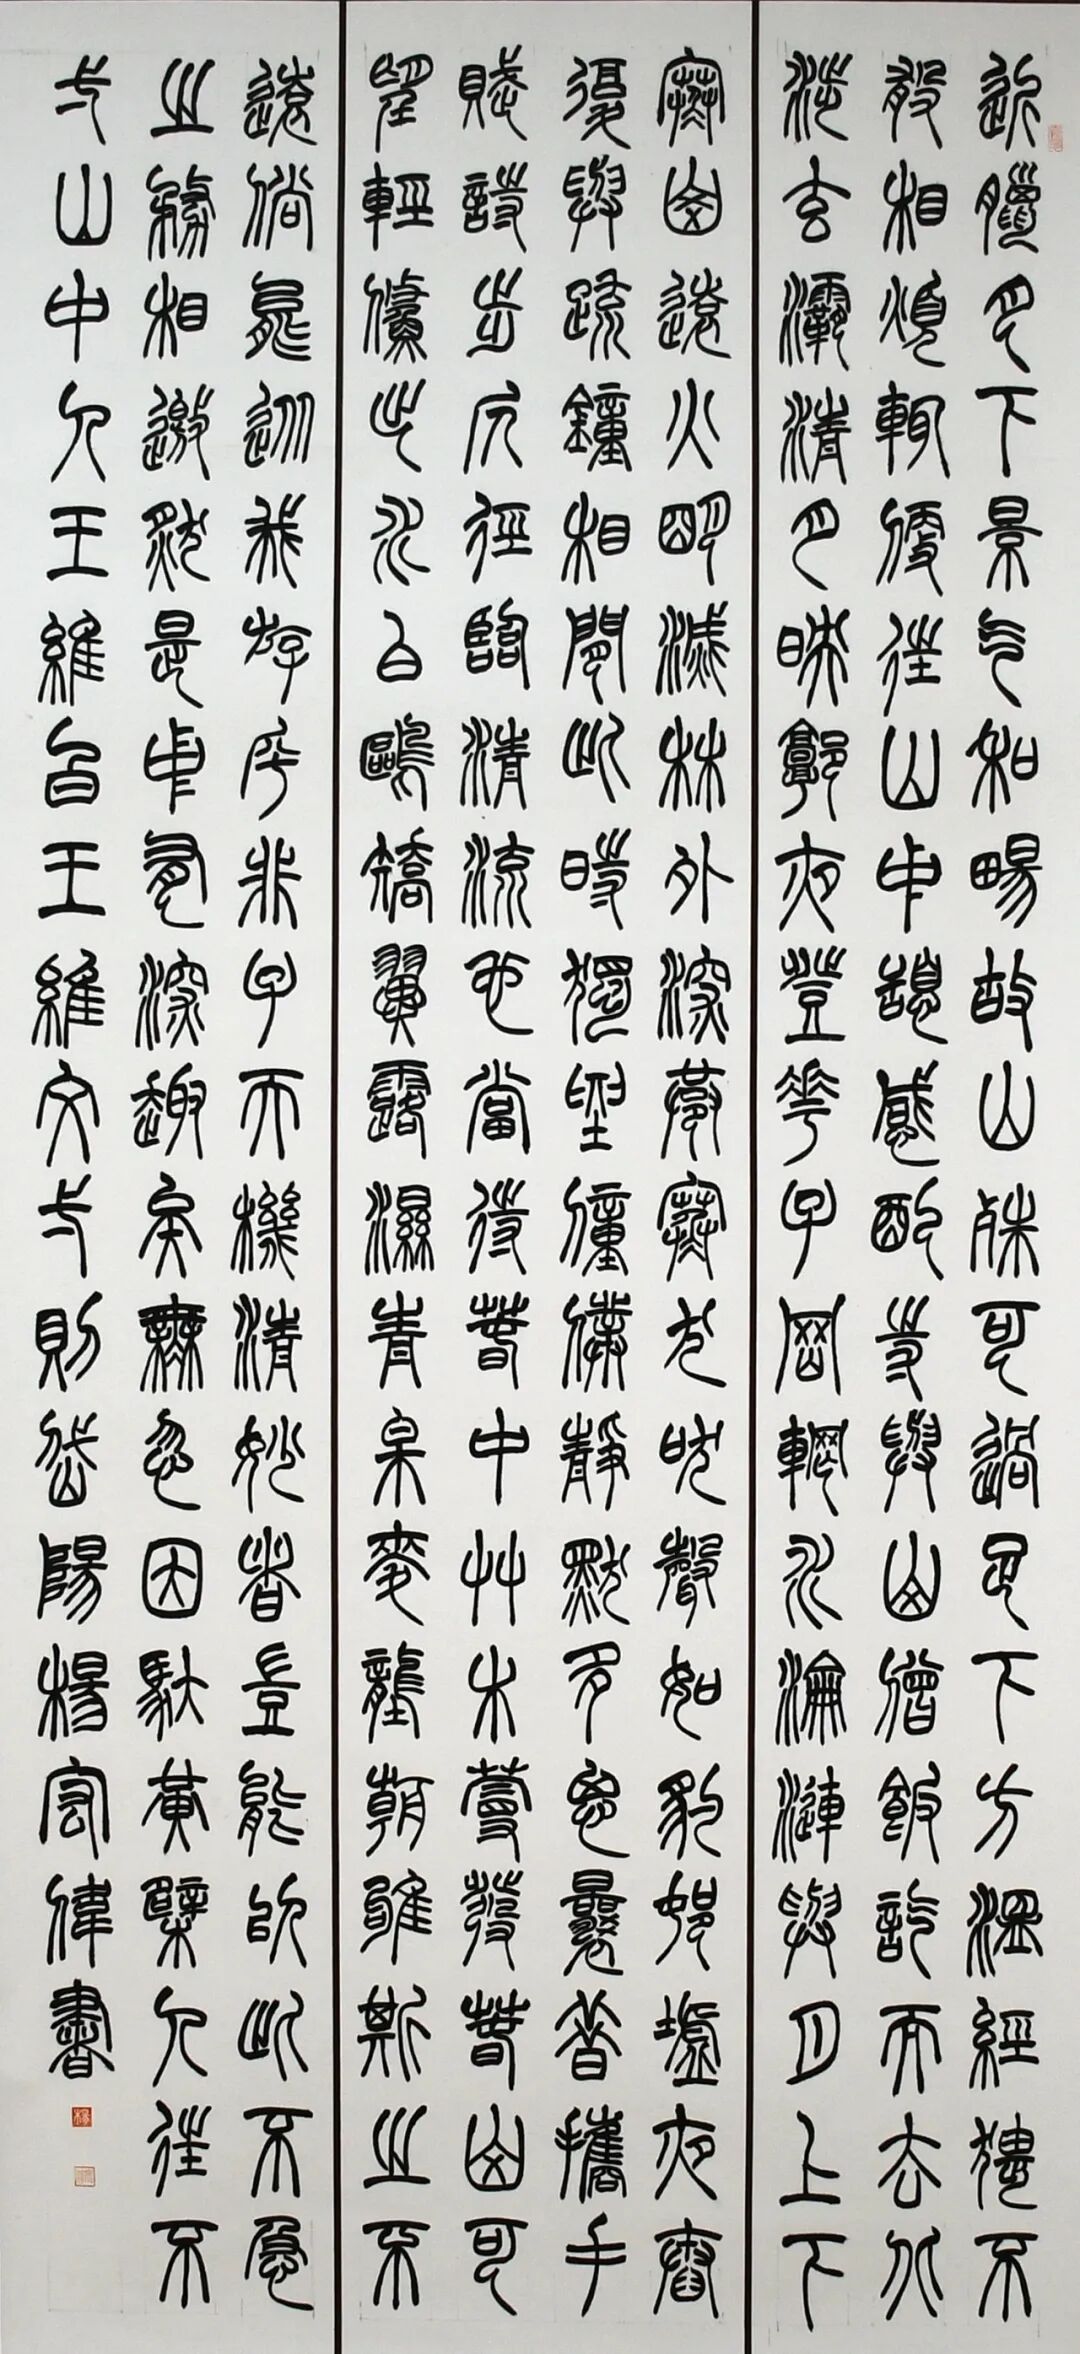 近臘月下景气和暢故山殊可過足下方溫經猥不
敢相煩輒便往山中憩感配寺與山僧飯訖而去北
涉玄灞清月映郭夜登華子岡輞水淪漣與月上下
寒山遠火明滅林外深巷寒犬吠聲如豹村墟夜舂
復與疏鐘相間此時獨坐僮僕靜默多思曩昔攜手
賦詩步仄徑臨清流也當待春中艸木蔓發春山可
望輕鯈出水白鷗矯翼露濕青皋麥隴朝雊斯之不
遠倘能從我遊乎非子天機清妙者豈能以此不急
之務相邀然是中有深趣矣無忽因馱黃檗人往不
弌山中人王維白王維文弌則岱陽楊宏偉書